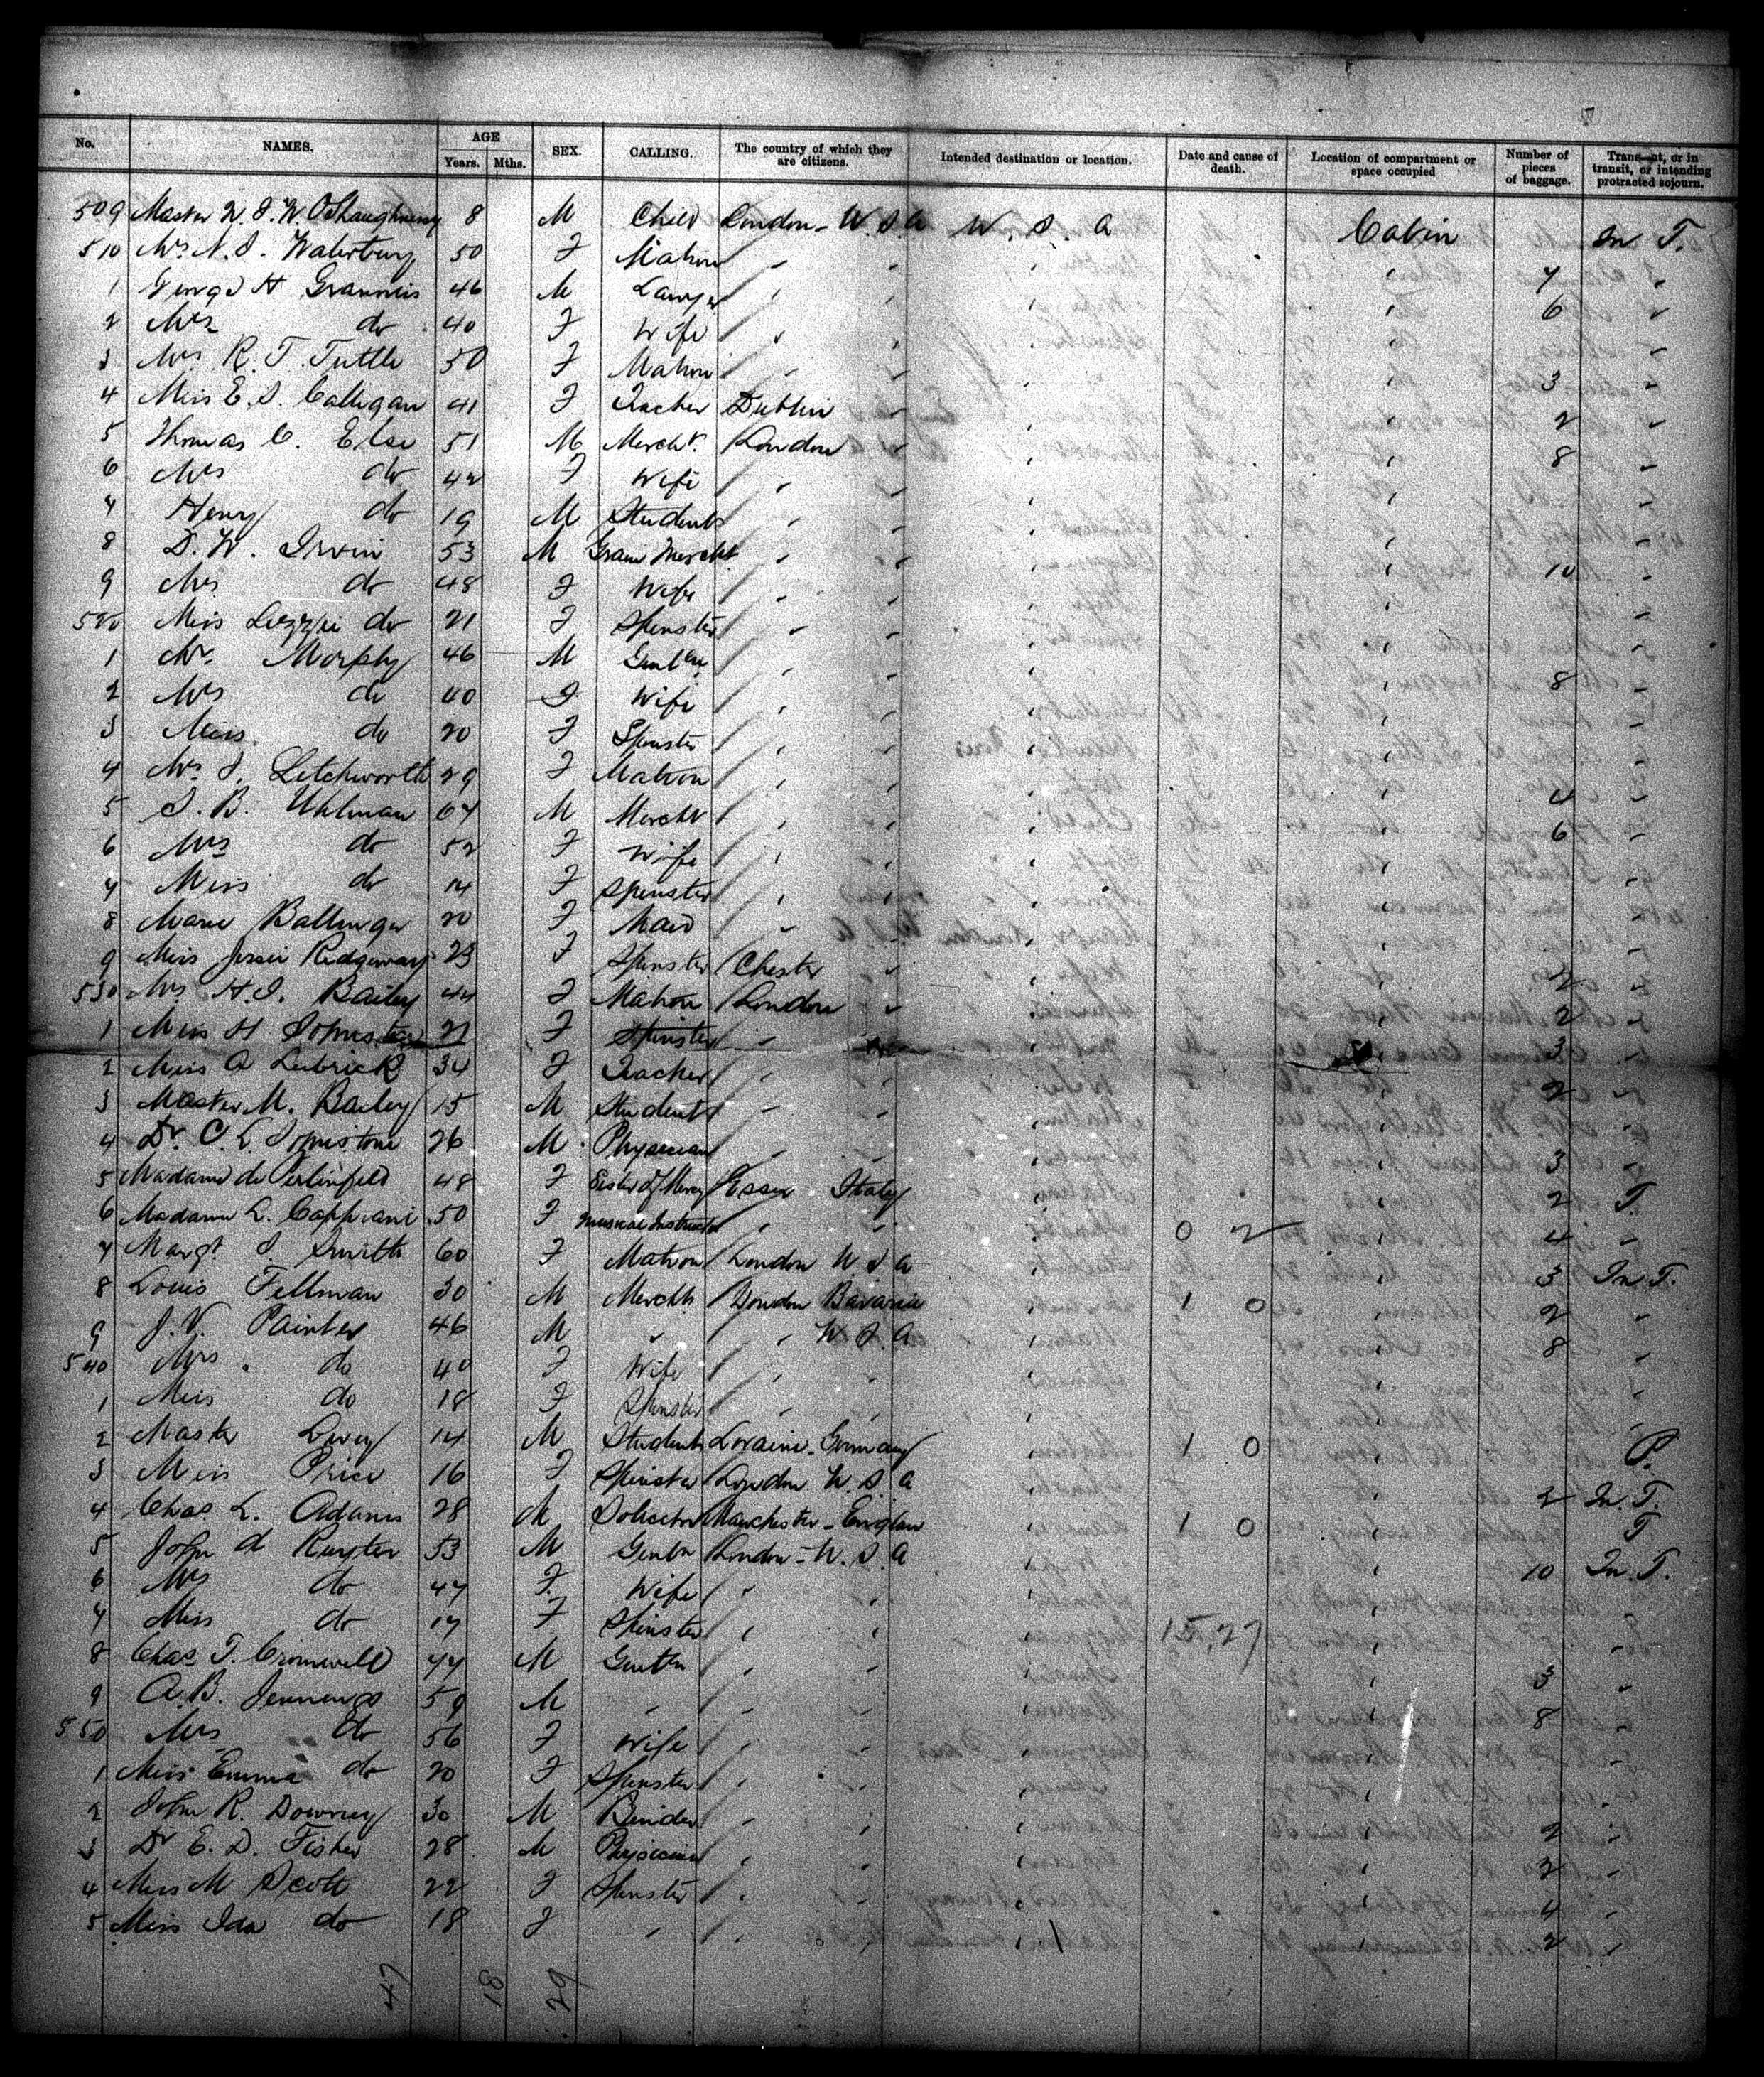 No. NAMES. AGE Years. Mths. SEX. CALLING. The country of which they are citizens. Intended destination or location. Date and cause of death. Location of compartment or space occupied Number of pieces of baggage. Transient, or in transit, or intending protracted sojourn.
509 Master O'Shaughnessy 8 M Child London - U.S.A U.S.A Cabin In T.
510 Mrs N. S. Waterbury 50 F Matron " " " " 7 "
1 George H Grannis 46 M Lawyer " " " " 6 "
2 Mrs do 40 F Wife " " " " "
3 Mrs R. T. Tuttle 50 F Matron " " " " 3 "
4 Miss E. S. Calligan 41 F Teacher Dublin " " " 2 "
5 Thomas C. Else 51 M Mercht. London " " " 8 "
6 Mrs do 42 F Wife " " " " "
7 Henry do 19 M Student " " " " "
8 D. W. Irwin 53 M Grain Mercht " " " " 10 "
9 Mrs do 48 F Wife " " " " "
520 Miss Lizzie do 21 F Spinster " " " " "
1 Mr. Murphy 46 M " " " " 8 "
2 Mrs do 40 F Wife " " " " "
3 Miss do 20 F Spinster " " " " "
4 Mrs J. Letchworth 29 F Matron " " " " 4 "
5 S. B. Uhlman 67 M Mercht " " " " 6 "
6 Mrs do 52 F Wife " " " " "
7 Miss do 14 F Spinster " " " " "
8 Marie Ballinger 20 F Maid " " " " "
9 Miss Jessie Ridgeway 23 F Spinster Chester " " " 2 "
530 Mrs H. S. Bailey 44 F Matron London " " " 2 "
1 Miss H Johnstone 21 F Spinster " " " " 3 "
2 Miss A 34 F Teacher " " " " 2 "
3 Master M. Bailey 15 M Student " " " " "
4 Dr. C. L. Johnstone 26 M Physician " " " " 3 "
5 Madame de 48 F Sister of Mercy Essex Italy " " 2 T.
6 Madame L. Cappiani 50 F Musical Instructor " " " 0 2 " 4 "
7 Margt. S. Smith 60 F Matron London U S A " " 3 In T.
8 Louis Fellman 30 M Mercht London Bavaria " 1 0 " 2 "
9 J. V. Painter 46 M " " U S A " " 8 "
540 Mrs. do 40 F Wife " " " " "
1 Miss do 18 F Spinster " " " " "
2 Master Levy 14 M Student Loraine - Germany " 1 0 " P.
3 Miss Price 16 F Spinster London U.S.A " " 2 In T.
4 Chas. L. Adams 28 M Solicitor Manchester - England " 1 0 " T
5 John d Ruyter 53 M Gentn London - U.S.A " " 10 In T.
6 Mrs do 47 F Wife " " " " "
7 Miss do 17 F Spinster " " " 15.27 " "
8 Chas. T. Cromwell 77 M Gentn " " " " 3 "
9 A. B. Jennings 59 M " " " " " 8 "
550 Mrs do 56 F Wife " " " " "
1 Miss Emma do 20 F Spinster " " " " "
2 John R. Downey 30 M Binder " " " " 2 "
3 Dr E. D. Fisher 28 M Physician " " " " 3 "
4 Miss M Scott 22 F Spinster " " " " 4 "
5 Miss Ida do 18 F " " " " " 2 "
47 18 29